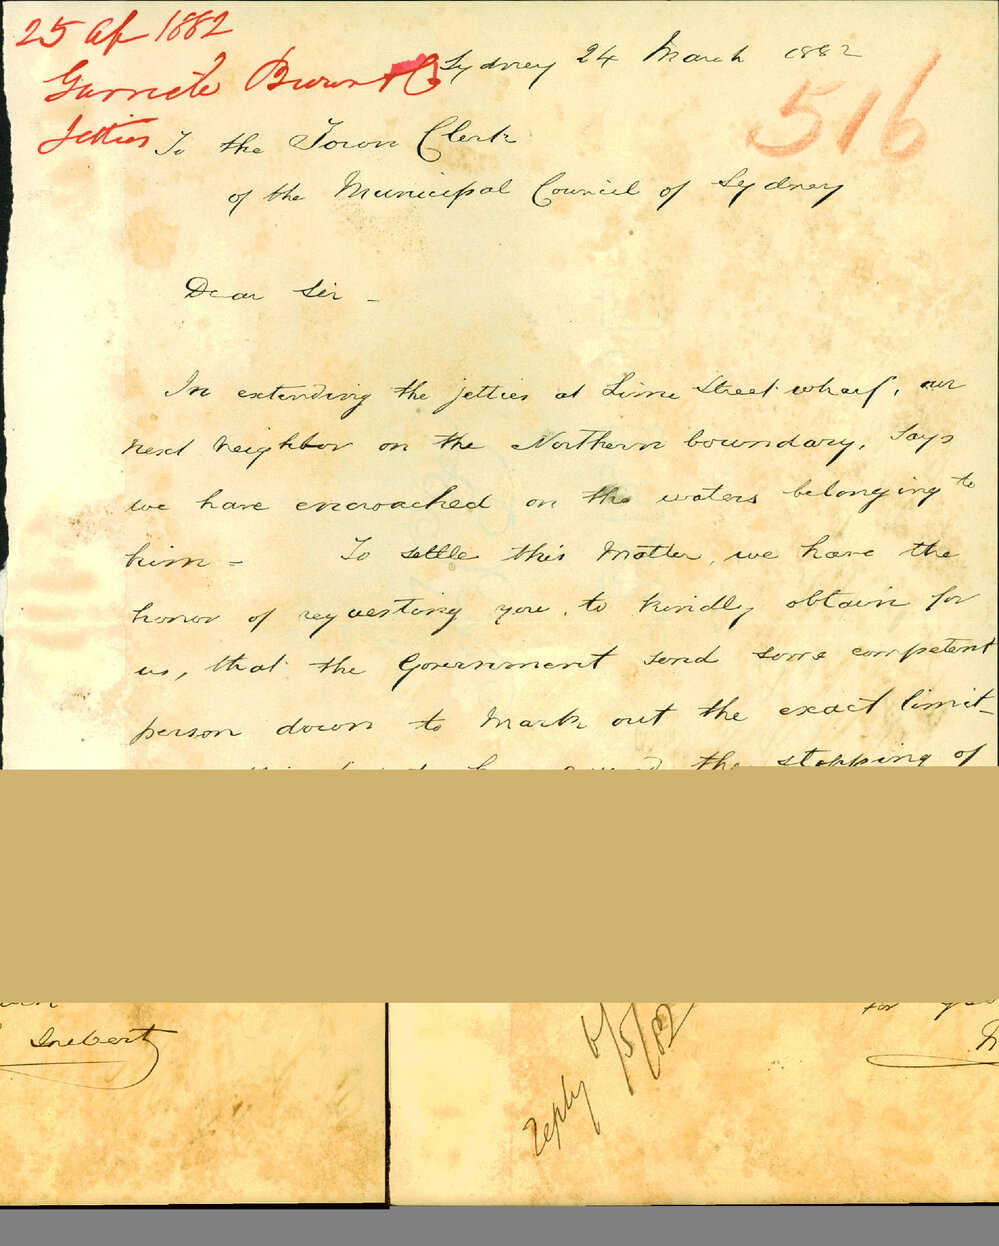 25 Ap 1882
Garrick Brown & Co
Jetties
Sydney 24 March 1882
516
To the Town Clerk
of the Municipal Council of Sydney
Dear Sir -
In extending the jetties at Lime Street wharf, our
next neighbor on the Northern boundary, says
we have encroached on the waters belonging to
him - To settle this matter, we have the
honor of requesting you, to kindly obtain for
us, that the Government send some competent
person down to mark out the exact limit-
the stopping of
Joubert
for
reply 6/5/82